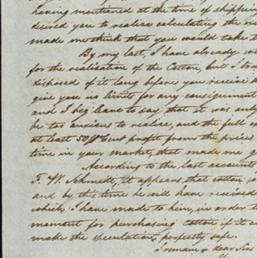 having mentioned at the time of shippin
desired you to realise calculating the
made me think that you would take t
By my last, I have already w
for the realisation of the Cotton, but I
disposed of it long before you receive
give you no limit for any consignment
and I beg leave to say, that it was only
be too anxious to realise, and the full
at least 50 profit from the prices
time in your market, that made me g
According to the last accounts
F. W. Schmidt, it appears that cotton
and by this time he will have received
which I have made to him, in order t
moment for purchasing cotton if it
make the speculation perfectly safe.
I remain dear Sir